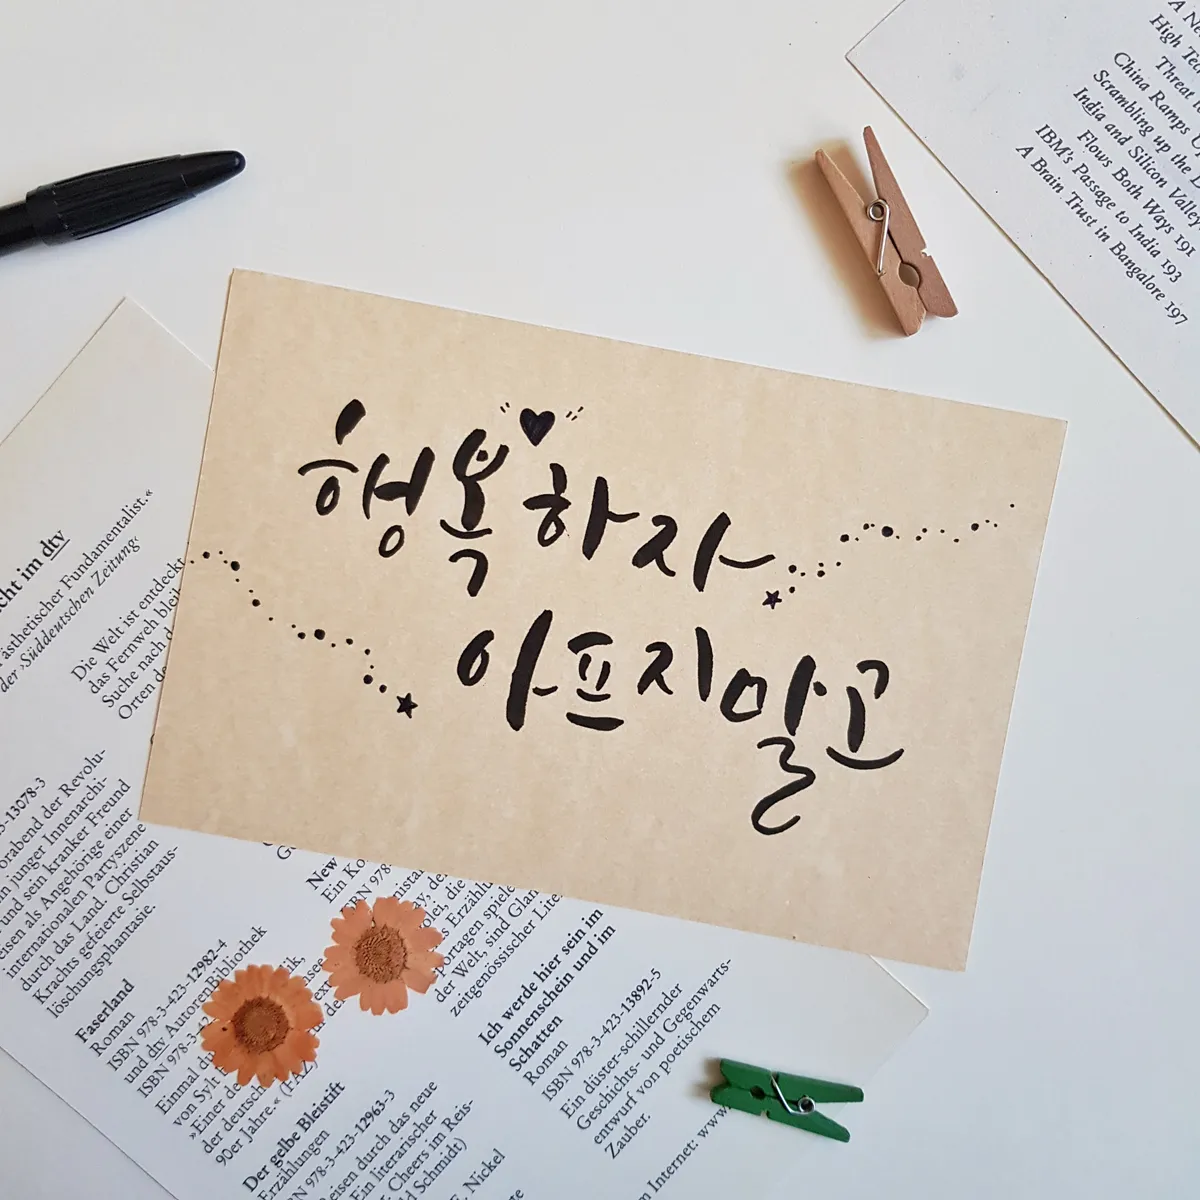 행복하자
아프지말고
A Ne
High Tec
Threat
China Ramps U
Scrambling up the L
India and Silicon Valley
Flows Both Ways 191
IBM's Passage to India 193
A Brain Trust in Bangalore 197
cht im dtv
ästhetischer Fundamentalist.«
der ›Süddeutschen Zeitung‹
Die Welt ist entdeckt
das Fernweh bleib
Suche nach d
Orten de
3-13078-3
orabend der Revolu-
n junger Innenarchi-
und sein kranker Freund
eisen als Angehörige einer
internationalen Partyszene
durch das Land. Christian
Krachts gefeierte Selbstaus-
löschungsphantasie.
Faserland
Roman
ISBN 978-3-423-12982-4
und dtv AutorenBibliothek
ISBN 978-3-
Einmal du
von Sylt
»Einer de
der deutsch
90er Jahre.« (FAZ)
Der gelbe Bleistift
Erzählungen
ISBN 978-3-423-12963-3
Reisen durch das neue
Ein literarischer
Cheers im Reis-
d Schmidt)
Nickel
New
Ein Ko
BN 978-
der Welt, sind Glan
zeitgenössischer Lite
Ich werde hier sein im
Sonnenschein und im
Schatten
Roman
ISBN 978-3-423-13892-5
Ein düster-schillernder
Geschichts- und Gegenwarts-
entwurf von poetischem
Zauber.
m Internet: www.